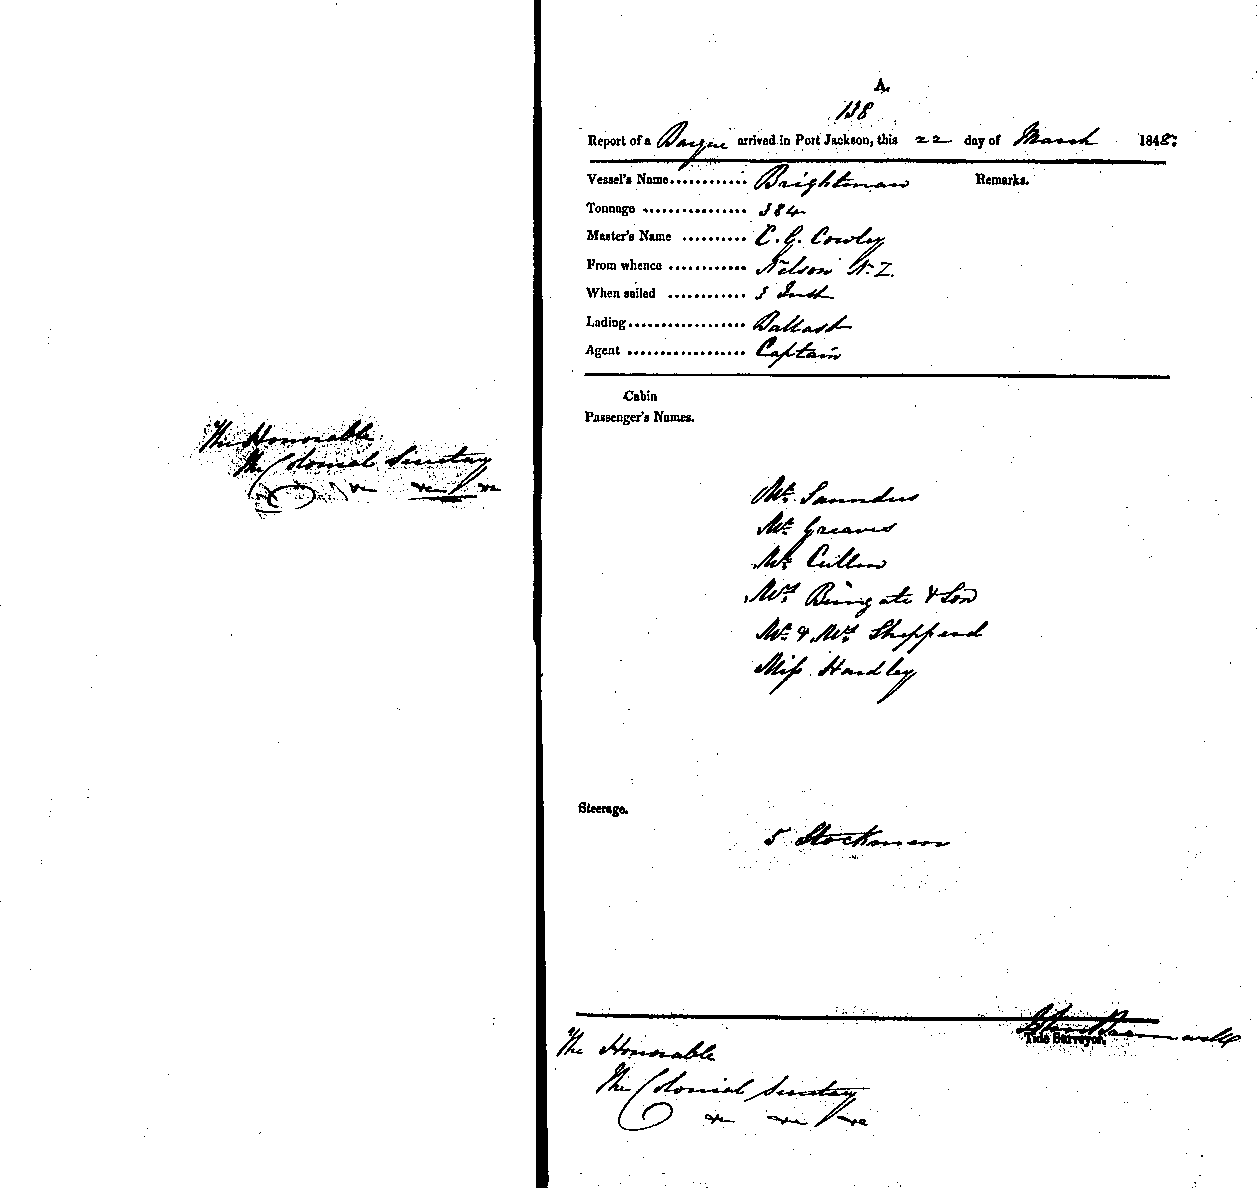 The Honorable
The Colonial Secretary
&c &c &c
A.
138
Report of a Barque arrived in Port Jackson, this 22 day of March 1848:
Vessel's Name............ Brightman Remarks.
Tonnage ................ 384
Master's Name .......... C. G. Cowley
From whence ............ Nelson N. Z.
When sailed ............ 3 Inst
Lading.................. Ballast
Agent .................. Captain
Cabin
Passenger's Names.
Mr. Saunders
Mr. Greaves
Mr. Cullen
Mrs. & Son
Mr. & Mrs. Sheppard
Miss Handley
Steerage.
5 Stockmen
Tide Surveyor.
The Honorable
The Colonial Secretary
&c &c &c